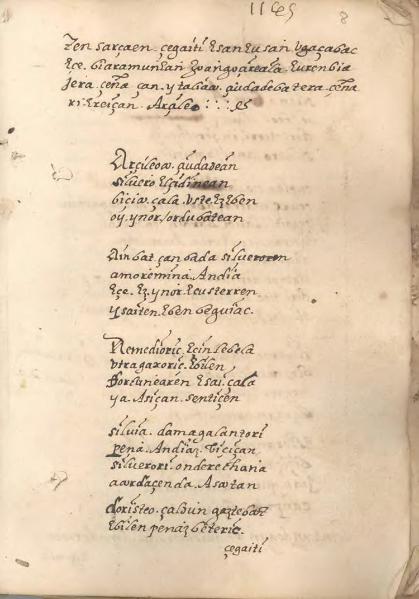 8
zen sarçaen. çegaiti esan eusan vgaçabac
eçe. biaramunean joango areala eurenbia
jera. çeña çan. ytabaw. çiudadebatera. çeña
ri. ereiçan. Arçileo
Arçileow. çiudadean
silvero elçidinean
biciw. çala. vste ez eben
oy. ynor. ordubatean
Ainbat. çan bada silveroren
amoremina. Andia
eçe. ez. ynor. eçusterren
ysaiten. eben beguiac.
Remedioric. ecin lebela
vtragaxoric. ebilen
fortunearen esai. çala
ya. Asiçan. sentiçen
silvia. dama galantori
pena. Andiaz. biciçan
silverori. onderechana
aardaçenda. Asartan
Doristeo. çaldun gaztebat
ebilen penaz beteric.
çegaiti